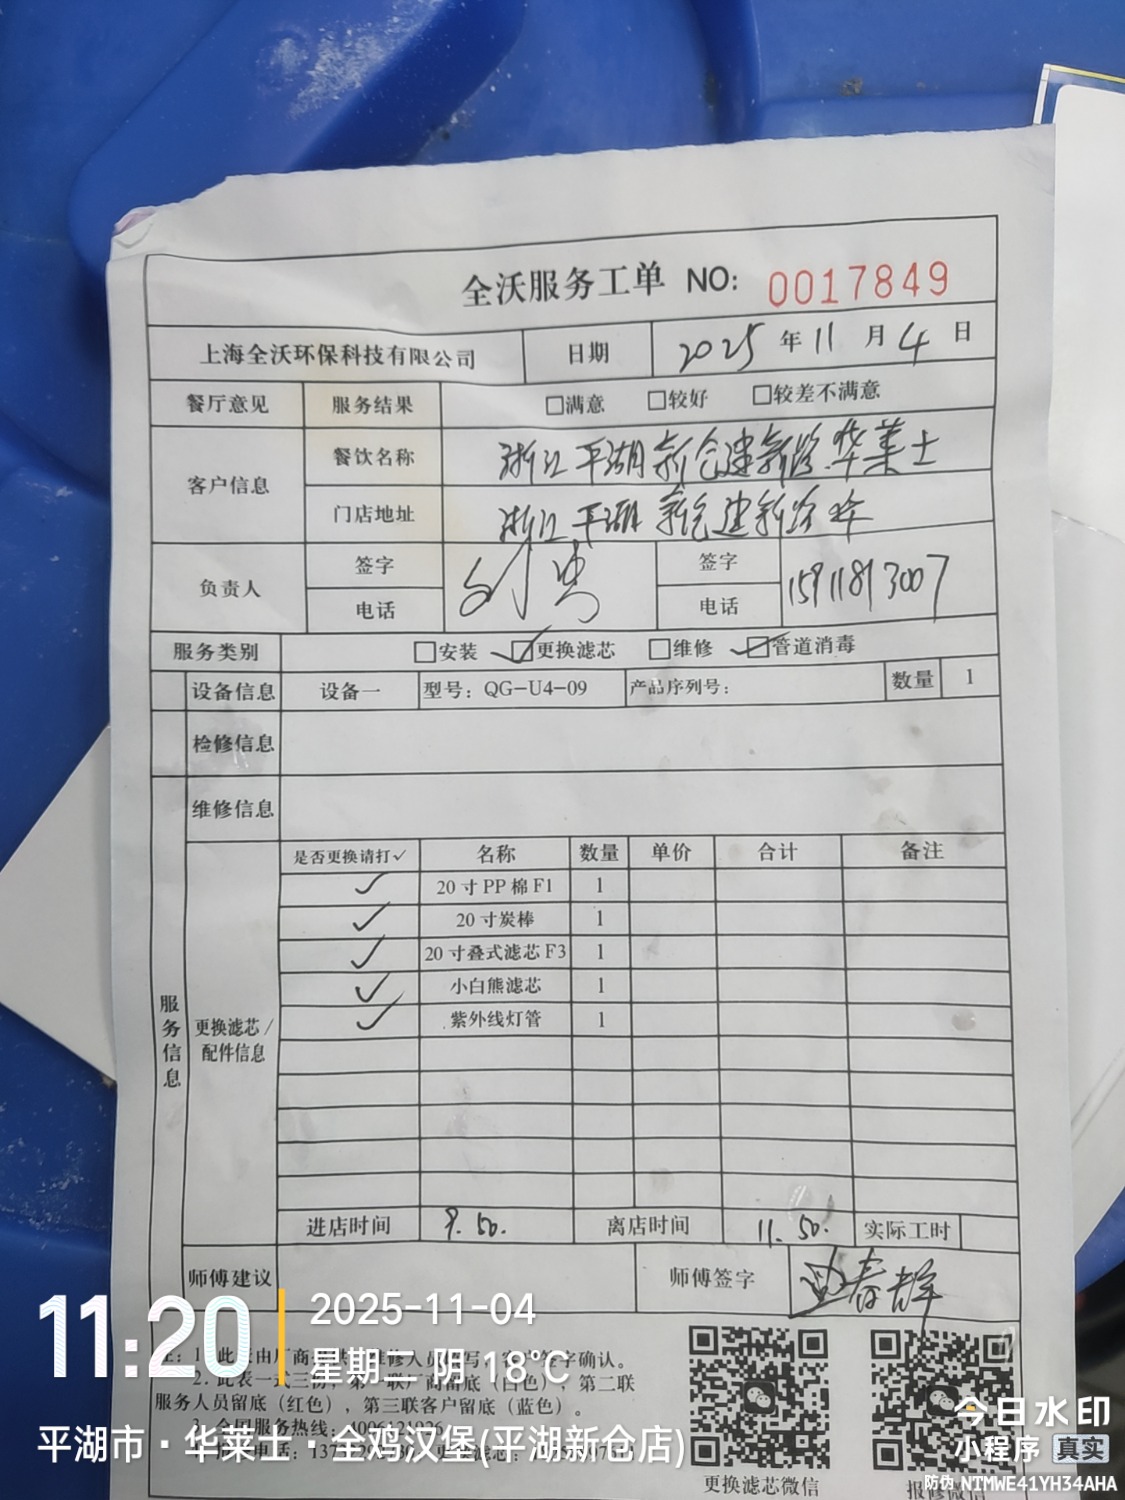 全沃服务工单 NO: 0017849
上海全沃环保科技有限公司 日期 2025年11月4日
餐厅意见 服务结果 □满意 □较好 □较差不满意
客户信息 餐饮名称 浙江平湖新仓建新路华莱士
门店地址 浙江平湖新仓建新路华
负责人 签字 签字
电话 电话 15911813007
服务类别 □安装 ☑更换滤芯 □维修 ☑管道消毒
设备信息 设备一 型号：QG-U4-09 产品序列号： 数量 1
检修信息
维修信息
是否更换请打✓ 名称 数量 单价 合计 备注
✓ 20寸PP棉F1 1
✓ 20寸炭棒 1
✓ 20寸叠式滤芯F3 1
✓ 小白熊滤芯 1
✓ 紫外线灯管 1
服务信息
更换滤芯/
配件信息
进店时间 9.50. 离店时间 11.50. 实际工时
师傅建议 师傅签字 春群
注：1.此 由厂商 维修人员 写，客户签字确认。
2.此表一式三份，第一联厂商留底（白色），第二联
服务人员留底（红色），第三联客户留底（蓝色）。
3.全国服务热线：
更换滤芯微信 报修微信
11:20
2025-11-04
星期二 阴 18℃
平湖市·华莱士·全鸡汉堡(平湖新仓店)
今日水印
小程序 真实
防伪 NTMWE41YH34AHA